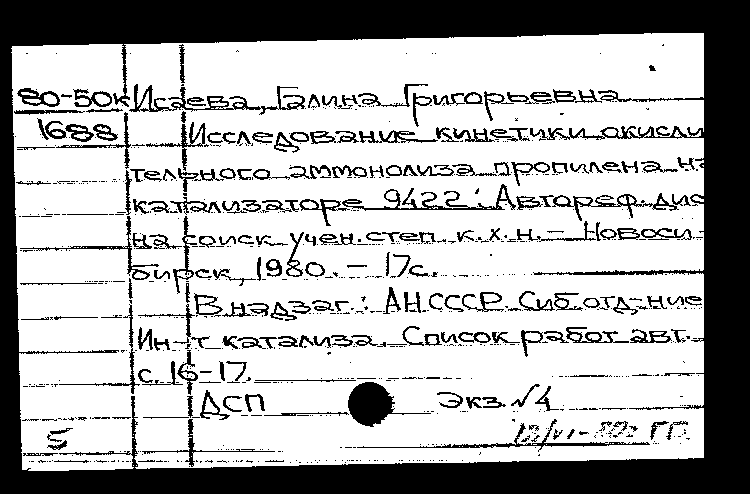 80-50к Исаева, Галина Григорьевна
1688 Исследование кинетики окисли
тельного аммонолиза пропилена на
катализаторе 9422 : Автореф. дис
на соиск учен. степ. к. х. н. - Новоси-
бирск, 1980. - 17с.
В надзаг. : АН СССР. Сиб. отд-ние
Ин-т катализа. Список работ авт.
с. 16-17.
ДСП Экз. №4
5